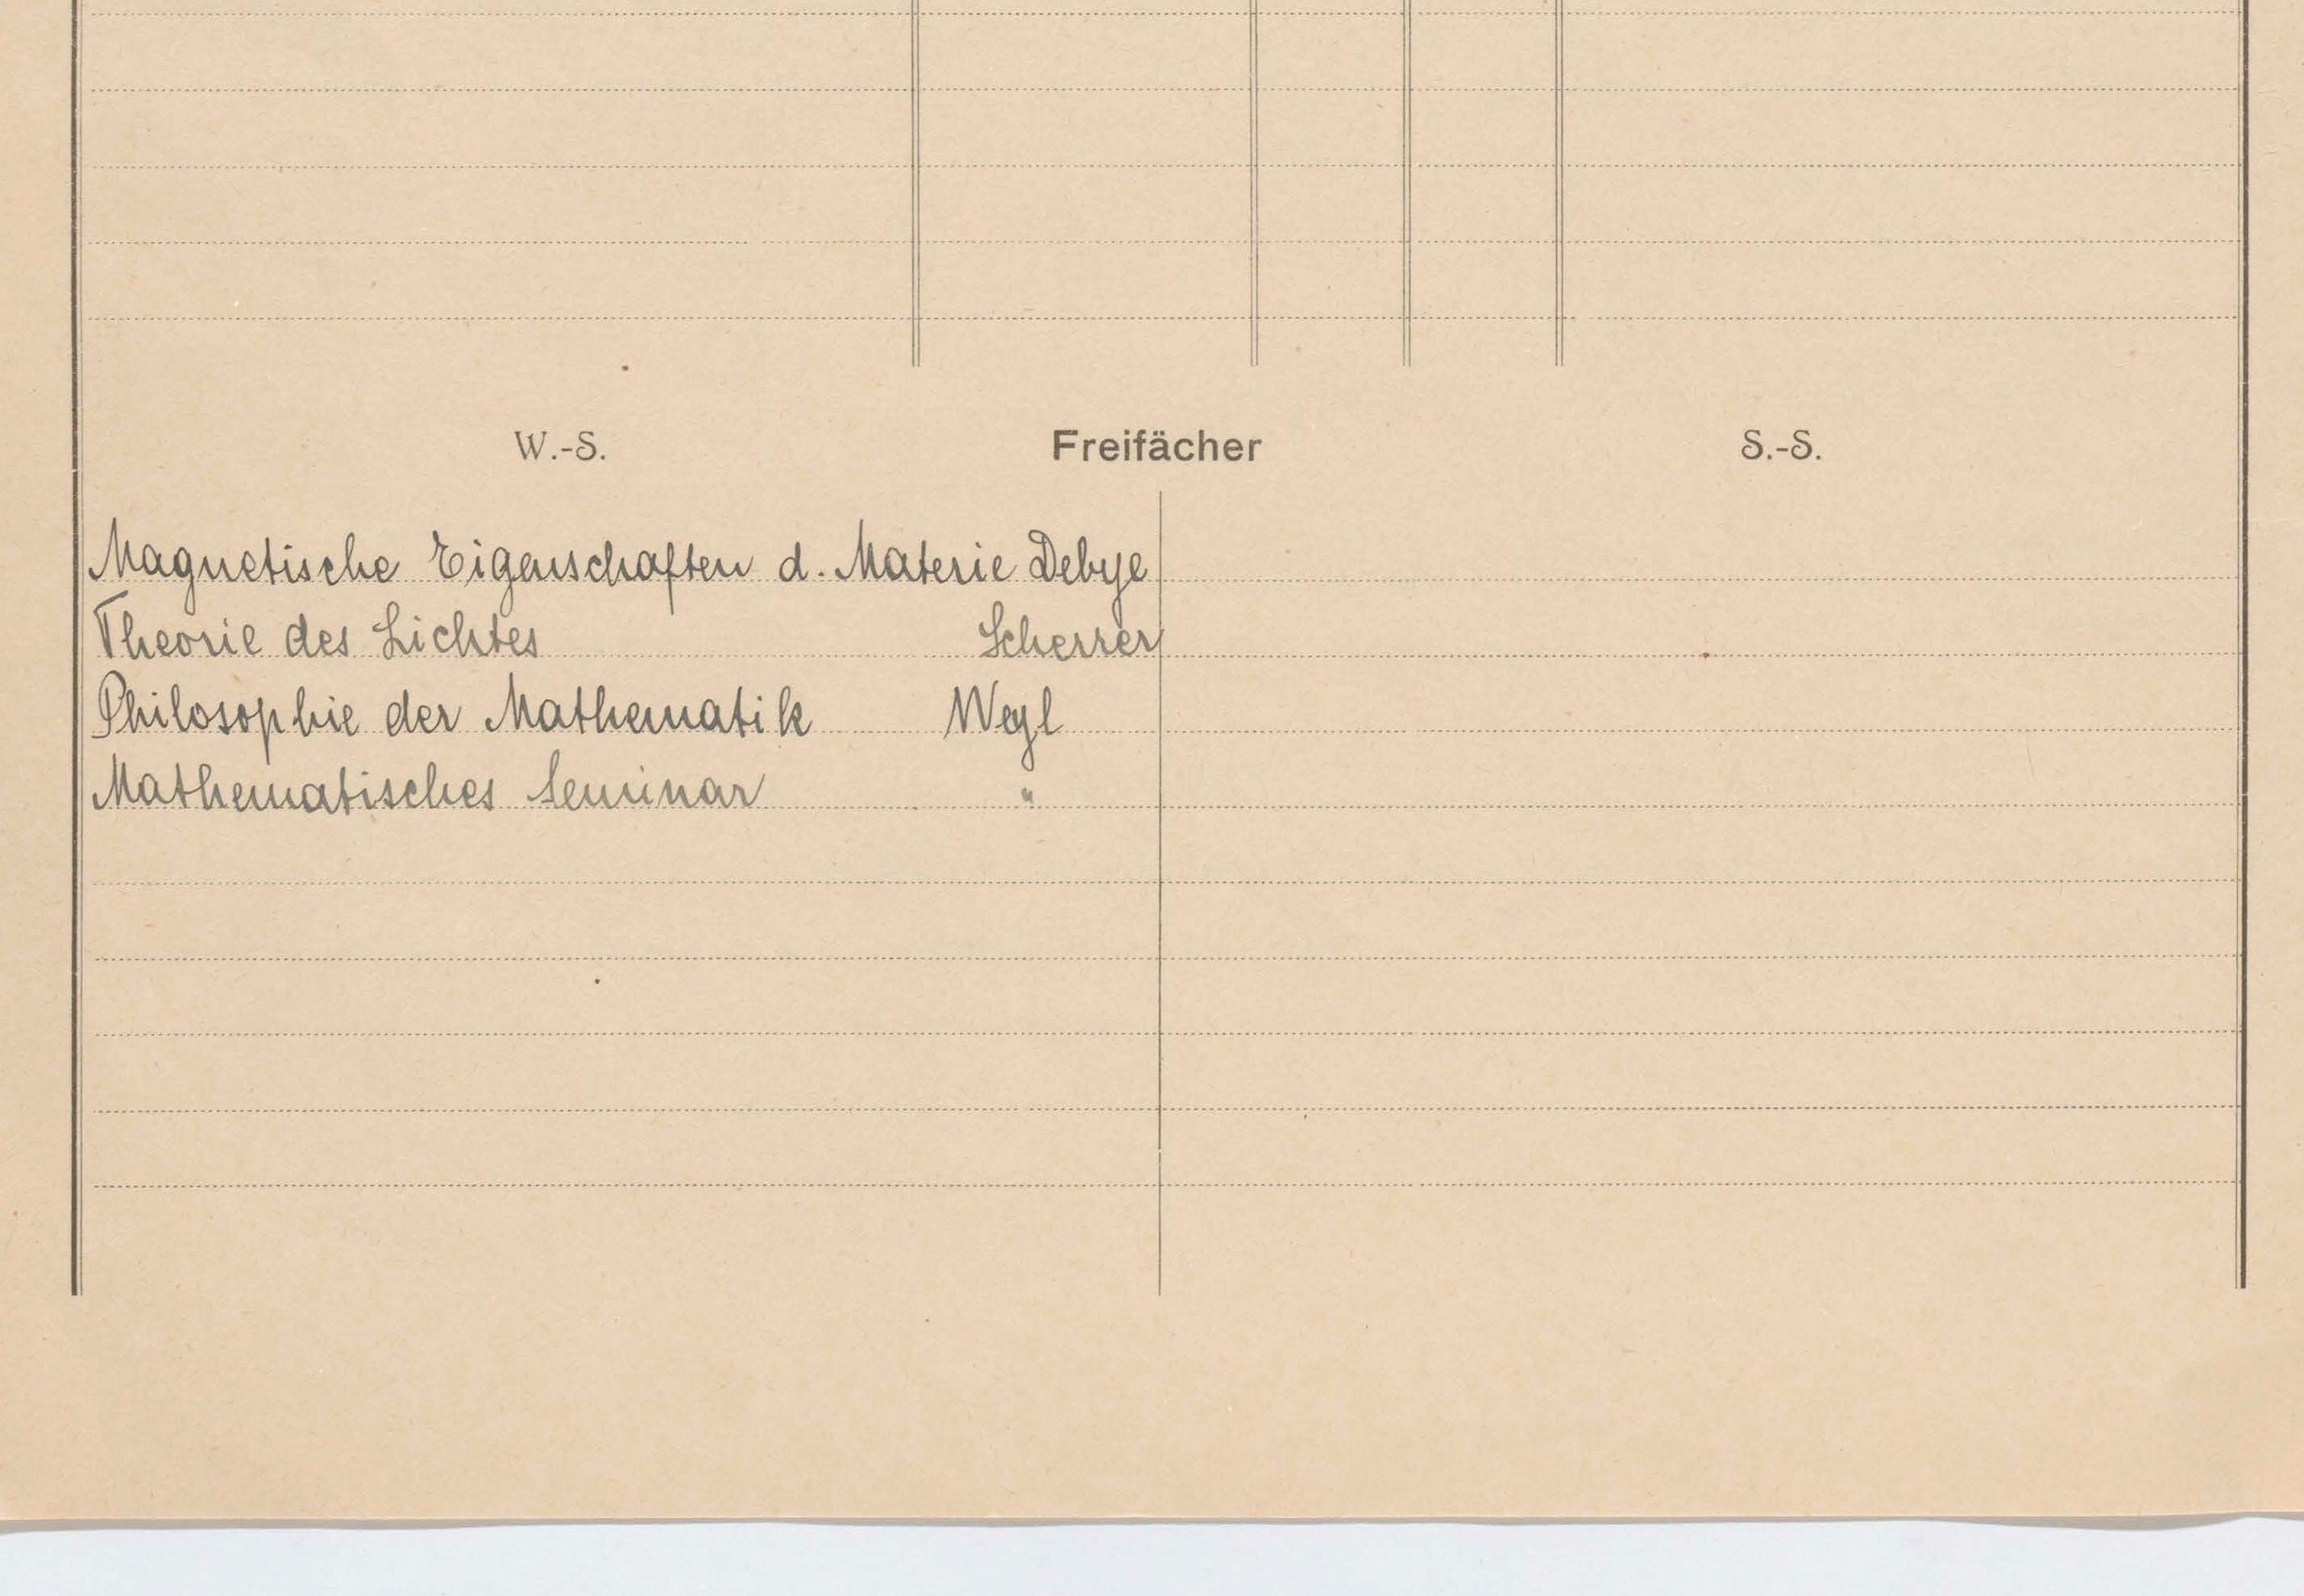 W.-S. Freifächer S.-S.
Magnetische Eigenschaften d. Materie Debye
Theorie des Lichtes Scherrer
Philosophie der Mathematik Weyl
Mathematisches Seminar "